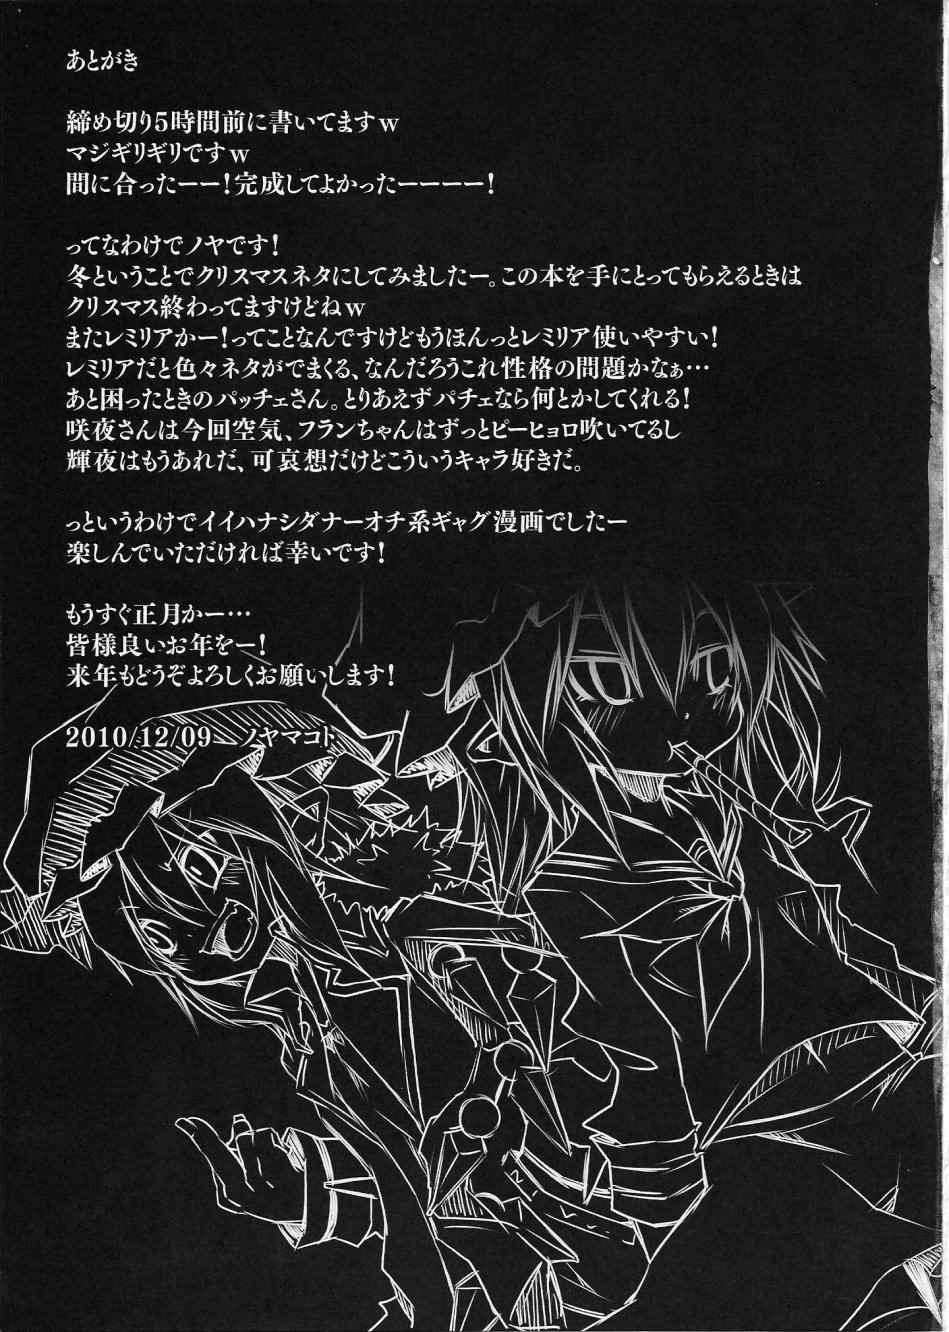 あとがき
締め切り5時間前に書いてますｗ
マジギリギリですｗ
間に合ったーー！完成してよかったーーーー！
ってなわけでノヤです！
冬ということでクリスマスネタにしてみましたー。この本を手にとってもらえるときは
クリスマス終わってますけどねｗ
またレミリアかー！ってことなんですけどもうほんっとレミリア使いやすい！
レミリアだと色々ネタがでまくる、なんだろうこれ性格の問題かなぁ…
あと困ったときのパッチェさん。とりあえずパチェなら何とかしてくれる！
咲夜さんは今回空気、フランちゃんはずっとピーヒョロ吹いてるし
輝夜はもうあれだ、可哀想だけどこういうキャラ好きだ。
っというわけでイイハナシダナーオチ系ギャグ漫画でしたー
楽しんでいただければ幸いです！
もうすぐ正月かー…
皆様良いお年をー！
来年もどうぞよろしくお願いします！
2010/12/09　ノヤマコト